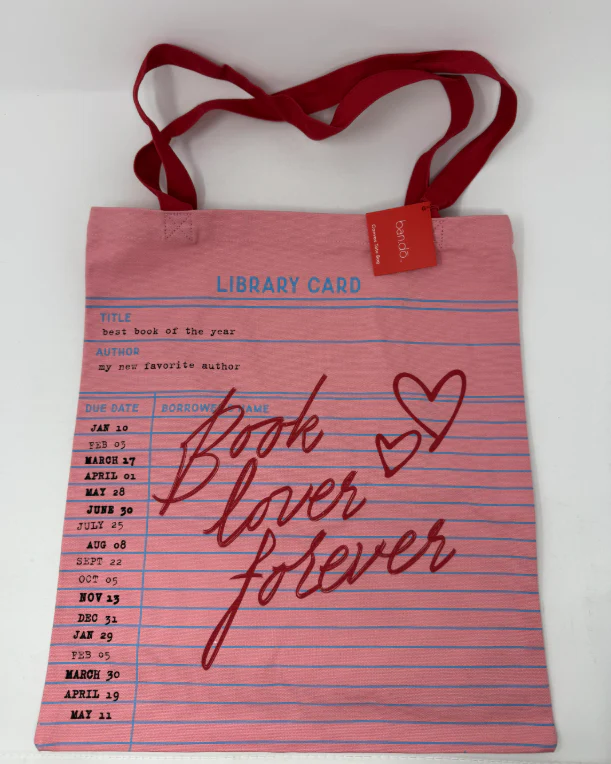 ban.dō.
Canvas Tote Bag
LIBRARY CARD
TITLE
best book of the year
AUTHOR
my new favorite author
DUE DATE
BORROWER NAME
JAN 10
FEB 05
MARCH 17
APRIL 01
MAY 28
JUNE 30
JULY 25
AUG 08
SEPT 22
OCT 05
NOV 13
DEC 31
JAN 29
FEB 05
MARCH 30
APRIL 19
MAY 11
Book
lover
forever